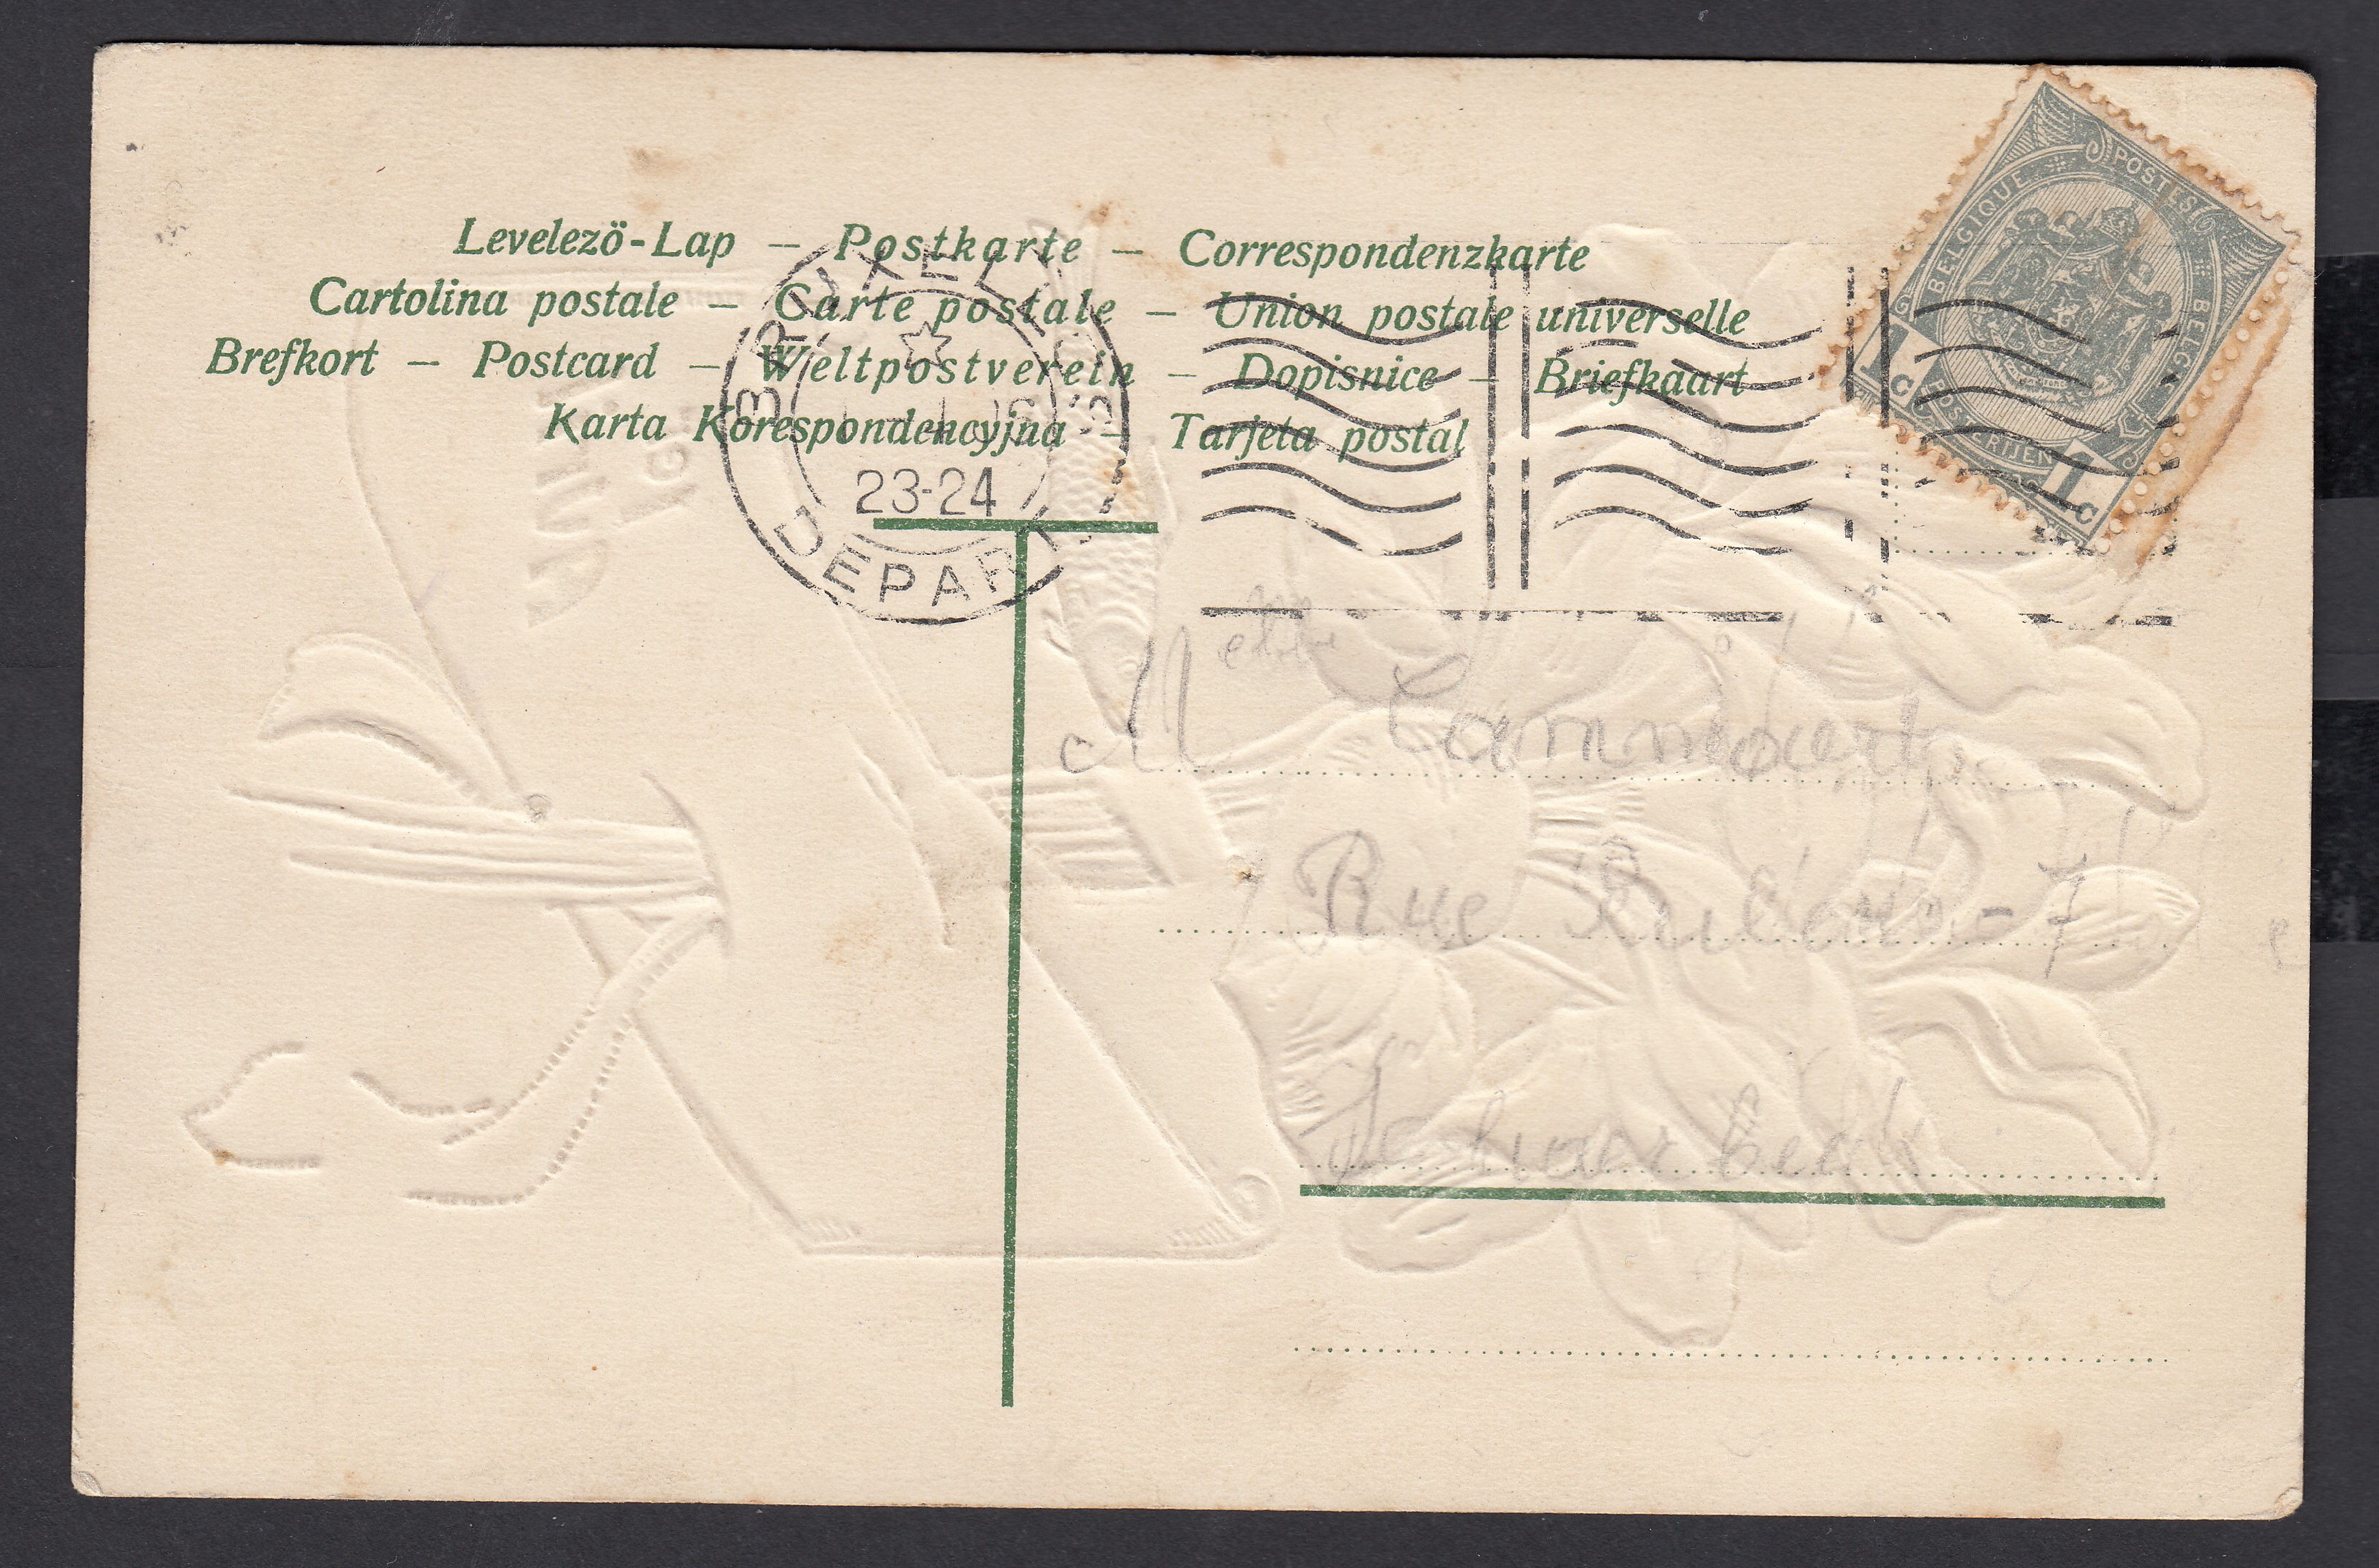 Levelező-Lap – Postkarte – Correspondenzkarte
Cartolina postale – Carte postale – Union postale universelle
Brefkort – Postcard – Weltpostverein – Dopisnice – Briefkaart
Karta Korespondencyjna – Tarjeta postal
BRUXELLES
23-24
DEPART
POSTES
BELGIQUE
BELGIË
POSTERIJEN
1c
1c
Melle
Rue Rubens - 7
Schaerbeek